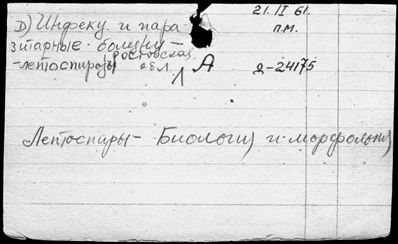 21.IV 61.
D) Инфекц. и пара
п.м.
зитарные болезни –
-лептоспирозы Ростовская
обл. 1 А
Д-24175
Лептоспиры – Биология и морфология